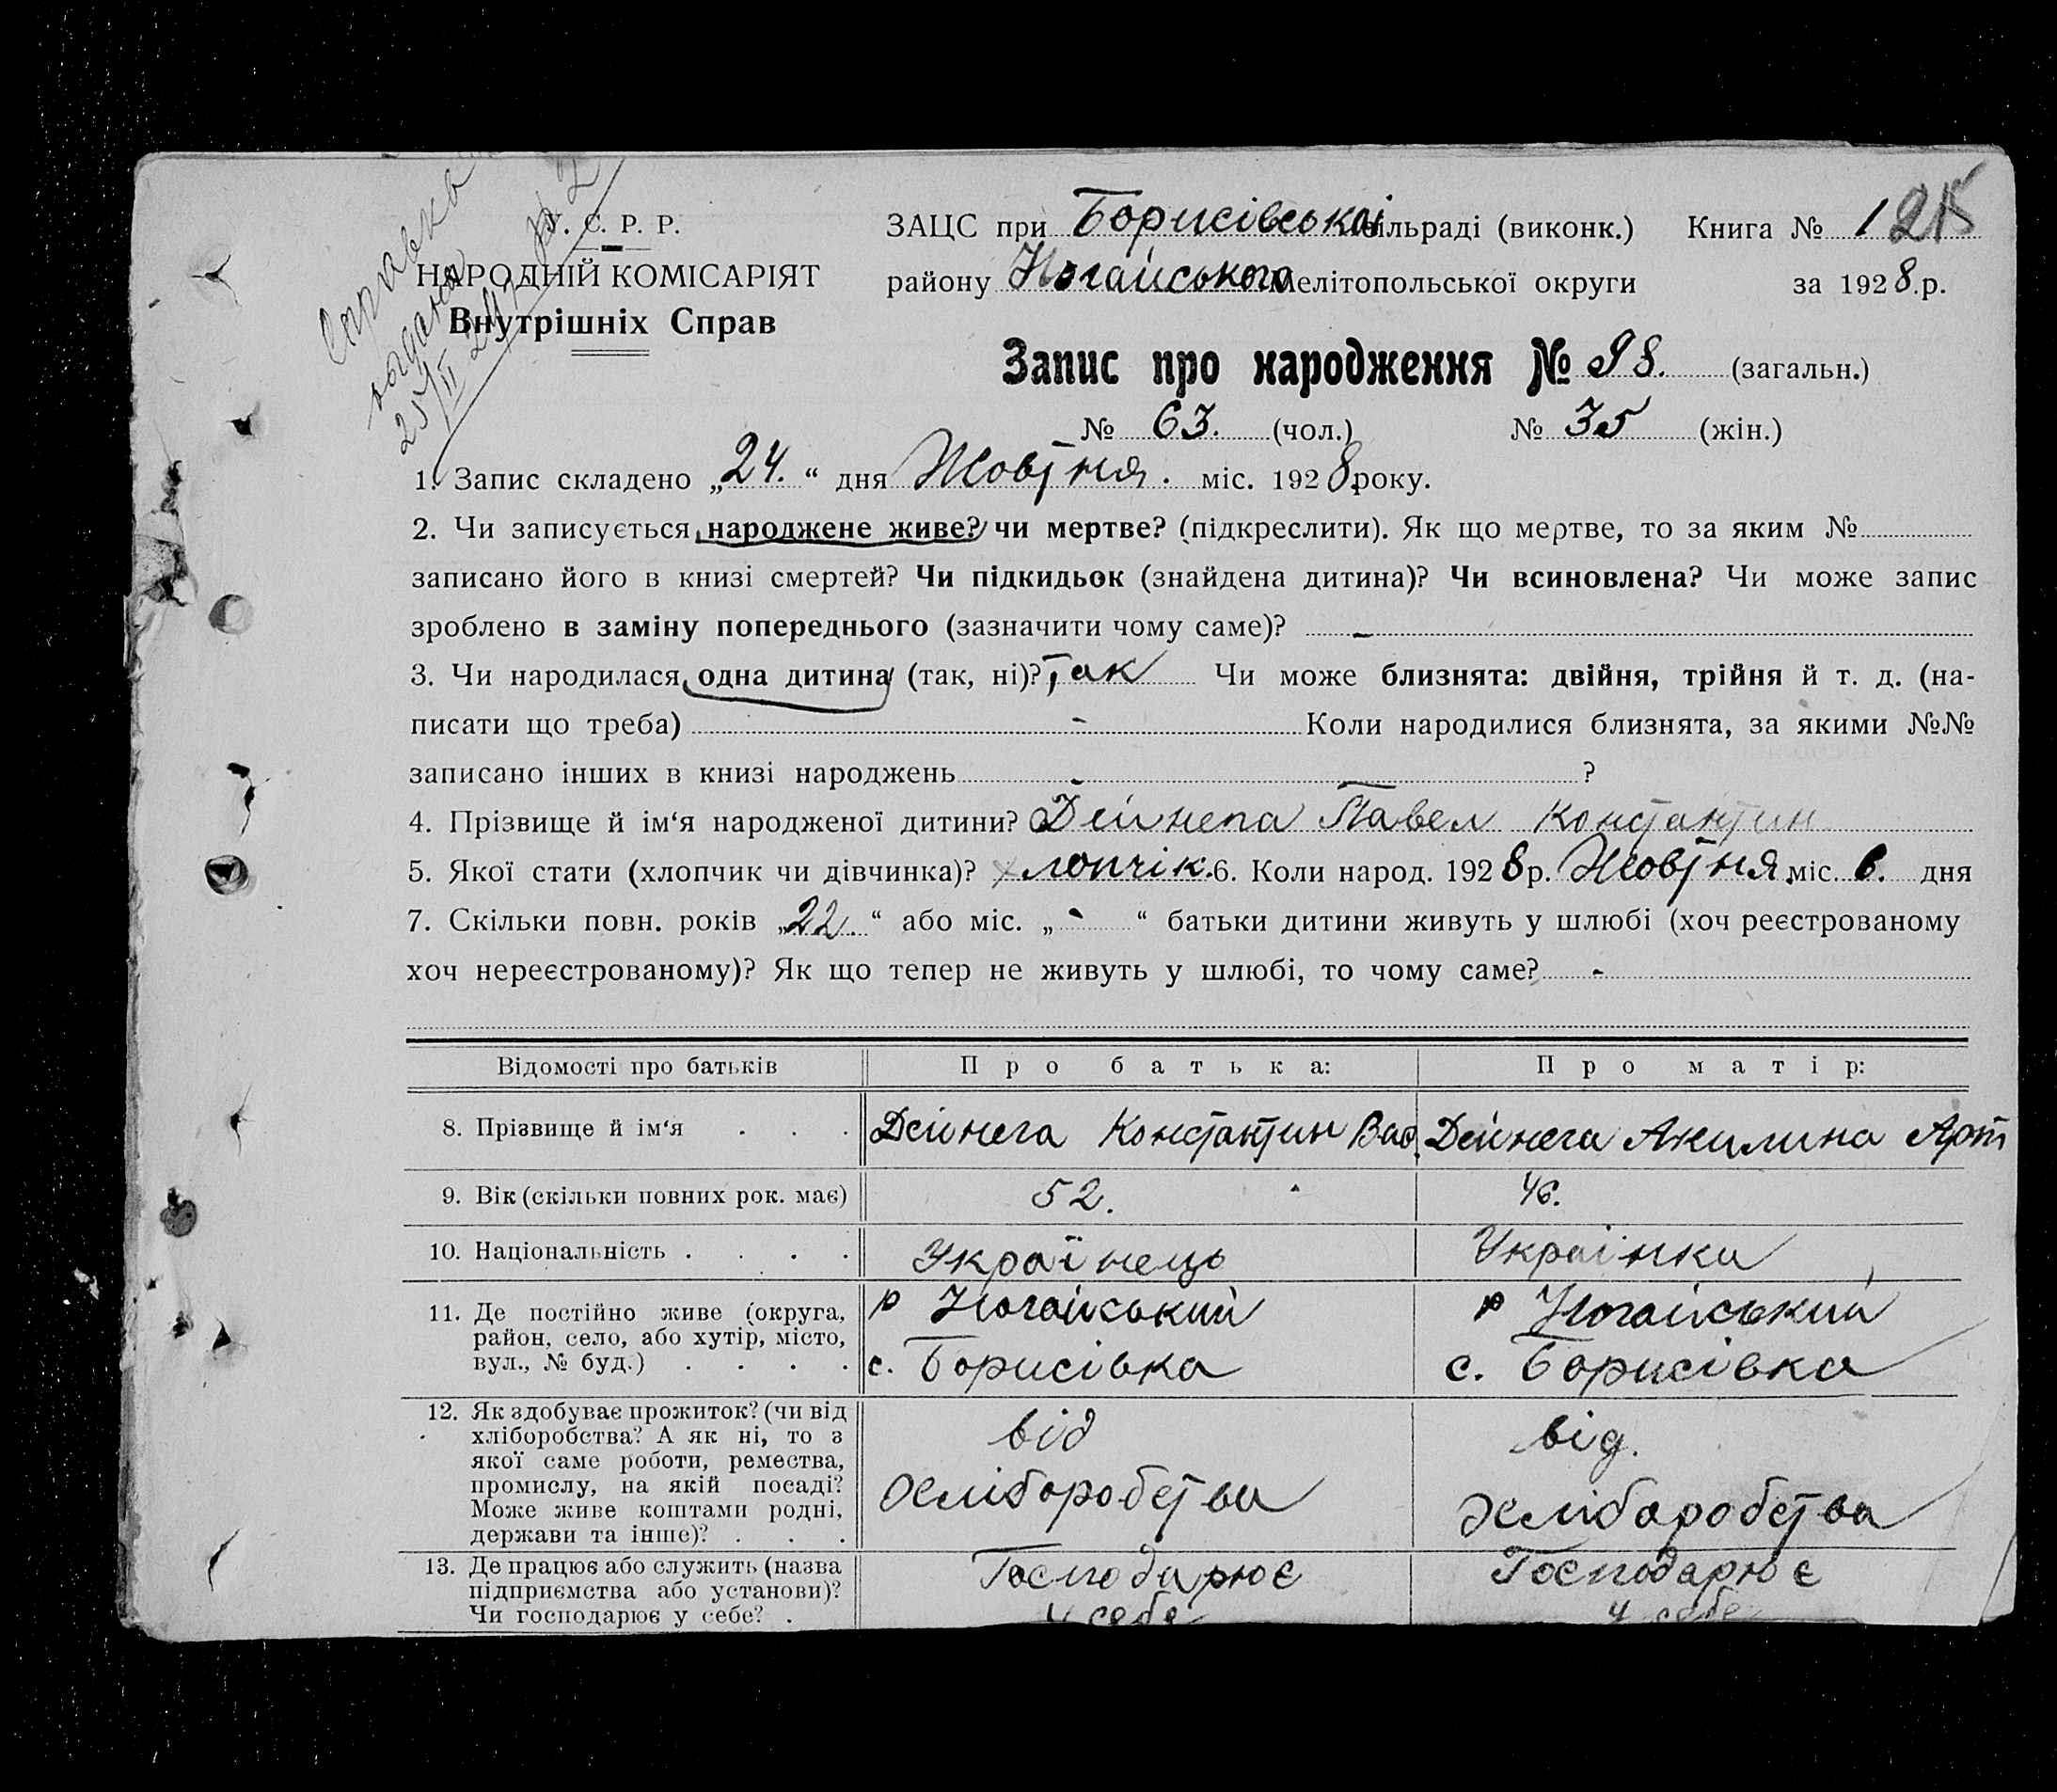 Справка
выдана
25/II 29 г. № 2
У. С. Р. Р.
НАРОДНІЙ КОМІСАРІЯТ
Внутрішніх Справ
ЗАЦС при Борисівській сільраді (виконк.) Книга № 1
району Ногайського Мелітопольської округи за 1928.р.
Запис про народження № 98. (загальн.)
№ 63. (чол.) № 35 (жін.)
1. Запис складено „24.“ дня Жовтня. міс. 1928 року.
2. Чи записується народжене живе? чи мертве? (підкреслити). Як що мертве, то за яким №
записано його в книзі смертей? Чи підкидьок (знайдена дитина)? Чи всиновлена? Чи може запис
зроблено в заміну попереднього (зазначити чому саме)? -
3. Чи народилася одна дитина (так, ні)? Так Чи може близнята: двійня, трійня й т. д. (на-
писати що треба) - Коли народилися близнята, за якими №№
записано інших в книзі народжень - ?
4. Прізвище й ім‘я народженої дитини? Дейнега Павел Константин
5. Якої стати (хлопчик чи дівчинка)? хлопчік. 6. Коли народ. 1928 р. Жовтня міс. 6. дня
7. Скільки повн. років „22.“ або міс. „-“ батьки дитини живуть у шлюбі (хоч реєстрованому
хоч нереєстрованому)? Як що тепер не живуть у шлюбі, то чому саме? -
Відомості про батьків Про батька: Про матір:
8. Прізвище й ім‘я . . . Дейнега Константин Вас. Дейнега Акилина Арт
9. Вік (скільки повних рок. має) 52. 46.
10. Національність . . . . Українець Українка
11. Де постійно живе (округа, р Ногайський р Ногайський
район, село, або хутір, місто,
вул., № буд.) . . . . с. Борисівка с. Борисівка
12. Як здобуває прожиток? (чи від від від.
хліборобства? А як ні, то з
якої саме роботи, ремества,
промислу, на якій посаді? хліборобства хліборобства
Може живе коштами родні,
держави та інше)? . . .
13. Де працює або служить (назва Господарює Господарює
підприємства або установи)?
Чи господарює у себе? . у себе у себе